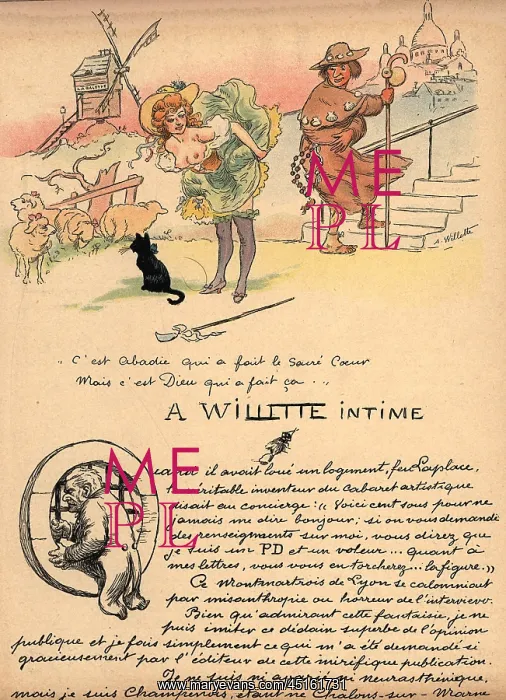 A. Willette
" C'est Abadie qui a fait le Sacré Cœur
Mais c'est Dieu qui a fait ça . . "
A WILLETTE INTIME
Quand il avait loué un logement, feu Laplace,
véritable inventeur du cabaret artistique
disait au concierge : " Voici cent sous pour ne
jamais me dire bonjour ; si on vous demande
des renseignements sur moi, vous direz que
je suis un PD et un voleur ... quant à
mes lettres, vous vous en torcherez ... la figure. "
Ce Montmartrois de Lyon se calomniait
par misanthropie ou horreur de l'interview.
Bien qu'admirant cette fantaisie, je ne
puis imiter ce dédain superbe de l'opinion
publique et je fais simplement ce qui m'a été demandé si
gracieusement par l'éditeur de cette mirifique publication.
Je ne suis ni
mais je suis Champenois, étant né Châlons-sur-Marne
ME
PL
ME
PL
www.maryevans.com/45161731